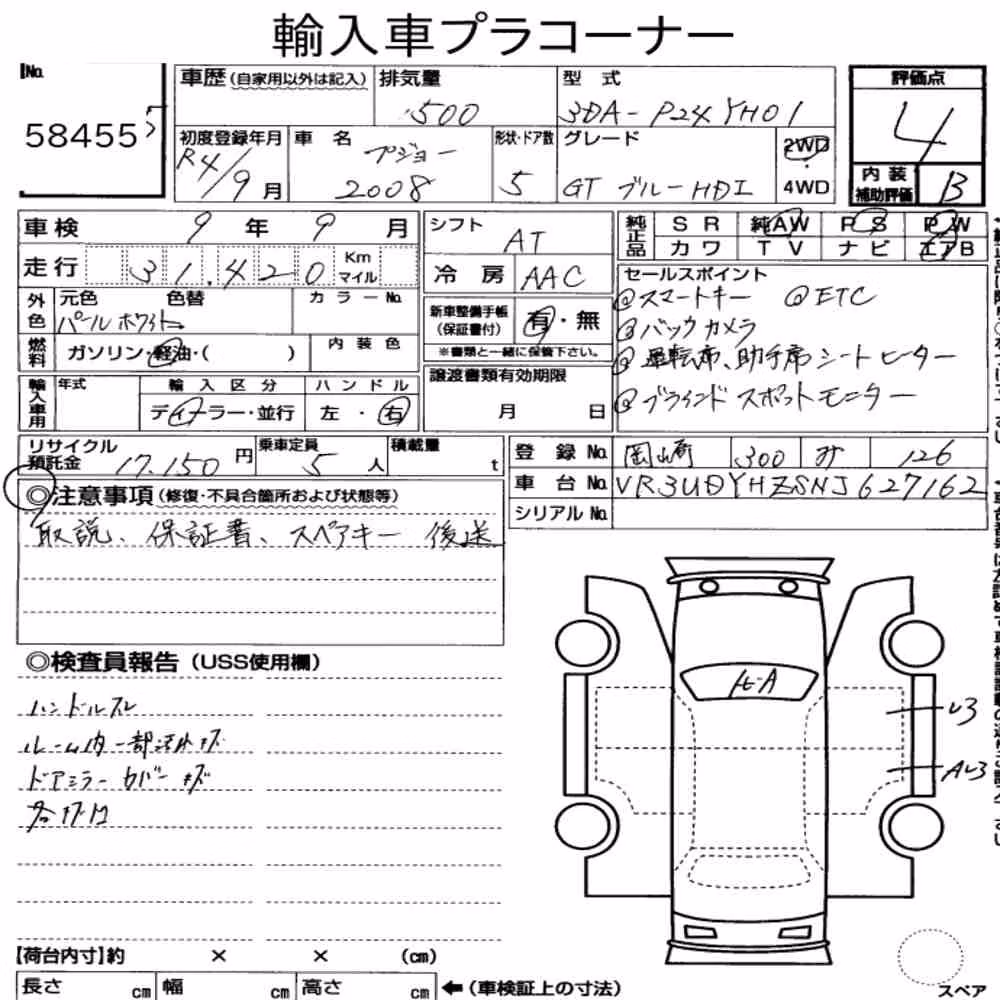 輸入車プラコーナー
No. 58455 5
車歴(自家用以外は記入) 排気量 1500 型式 3DA-P24YH01 評価点 4
初度登録年月 R4/9月 車名 プジョー 2008 形状・ドア数 5 グレード GT ブルーHDI 2WD・4WD 内装補助評価 B
車検 9年 9月 シフト AT 純正品 SR 純AW PS PW
走行 31,420 Km マイル 冷房 AAC カワ TV ナビ エアB
外色 元色 パールホワイト 色替 カラーNo. 新車整備手帳(保証書付) 有・無
※書類と一緒に保管下さい。
燃料 ガソリン・軽油・( ) 内装色
輸入車用 年式 輸入区分 ディーラー・並行 ハンドル 左・右 譲渡書類有効期限 月 日
セールスポイント
@スマートキー @ETC
@バックカメラ
@運転席、助手席シートヒーター
@ブラインドスポットモニター
リサイクル預託金 17,150円 乗車定員 5人 積載量 t 登録No. 岡崎 300 み 126
車台No. VR3UDYHZSNJ627162
シリアルNo.
◎注意事項(修復・不具合箇所および状態等)
取説、保証書、スペアキー 後送
◎検査員報告(USS使用欄)
ハンドルスレ
ルーム内一部活水キズ
ドアミラーカバーキズ
各キズ凹
ヒ-A
U3
AU3
【荷台内寸】約 × × (cm)
長さ cm 幅 cm 高さ cm ←(車検証上の寸法)
スペア